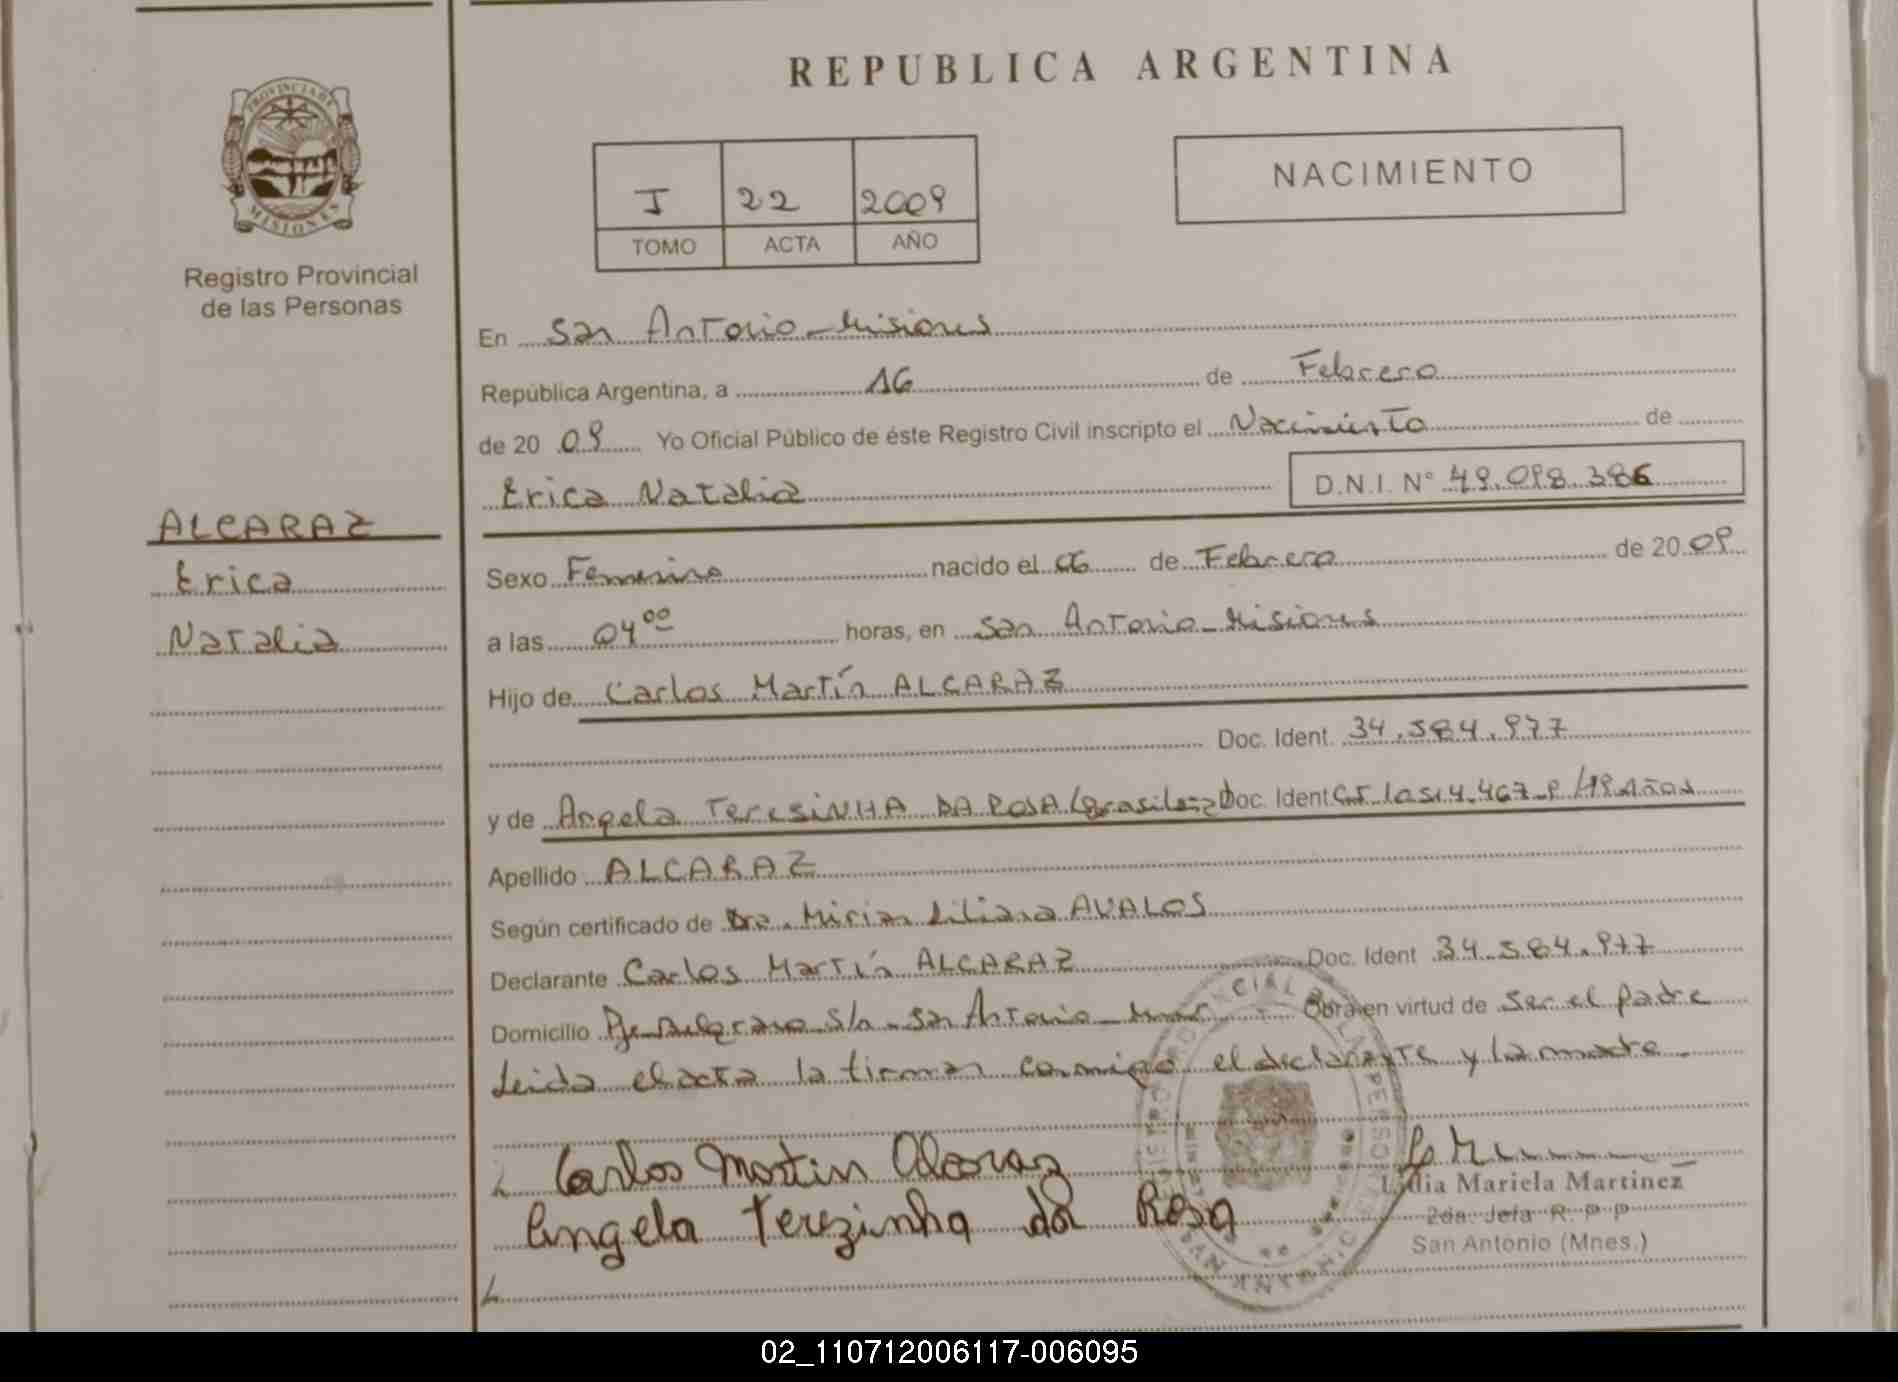 REPUBLICA ARGENTINA
PROVINCIA DE
MISIONES
Registro Provincial
de las Personas
I 22 2009
TOMO ACTA AÑO
NACIMIENTO
En San Antonio - Misiones
República Argentina, a 16 de Febrero
de 20 09 Yo Oficial Público de éste Registro Civil inscripto el Nacimiento de
Erica Natalia D.N.I. Nº 49.098.386
ALCARAZ
Erica
Natalia
Sexo Femenino nacido el 06 de Febrero de 20 09
a las 04 00 horas, en San Antonio - Misiones
Hijo de Carlos Martín ALCARAZ
Doc. Ident. 34.584.977
y de Angela TERESINHA DA ROSA (brasileña) Doc. Ident /19 años
Apellido ALCARAZ
Según certificado de Dra. Mirian Liliana AVALOS
Declarante Carlos Martín ALCARAZ Doc. Ident 34.584.977
Domicilio s/n - San Antonio - Obra en virtud de Ser el padre
Leida el acta la firman conmigo el declarante y la madre
Carlos Martin Alcaraz
Angela Terezinha da Rosa
Lidia Mariela Martinez
2da. Jefa R. P. P
San Antonio (Mnes.)
02_110712006117-006095